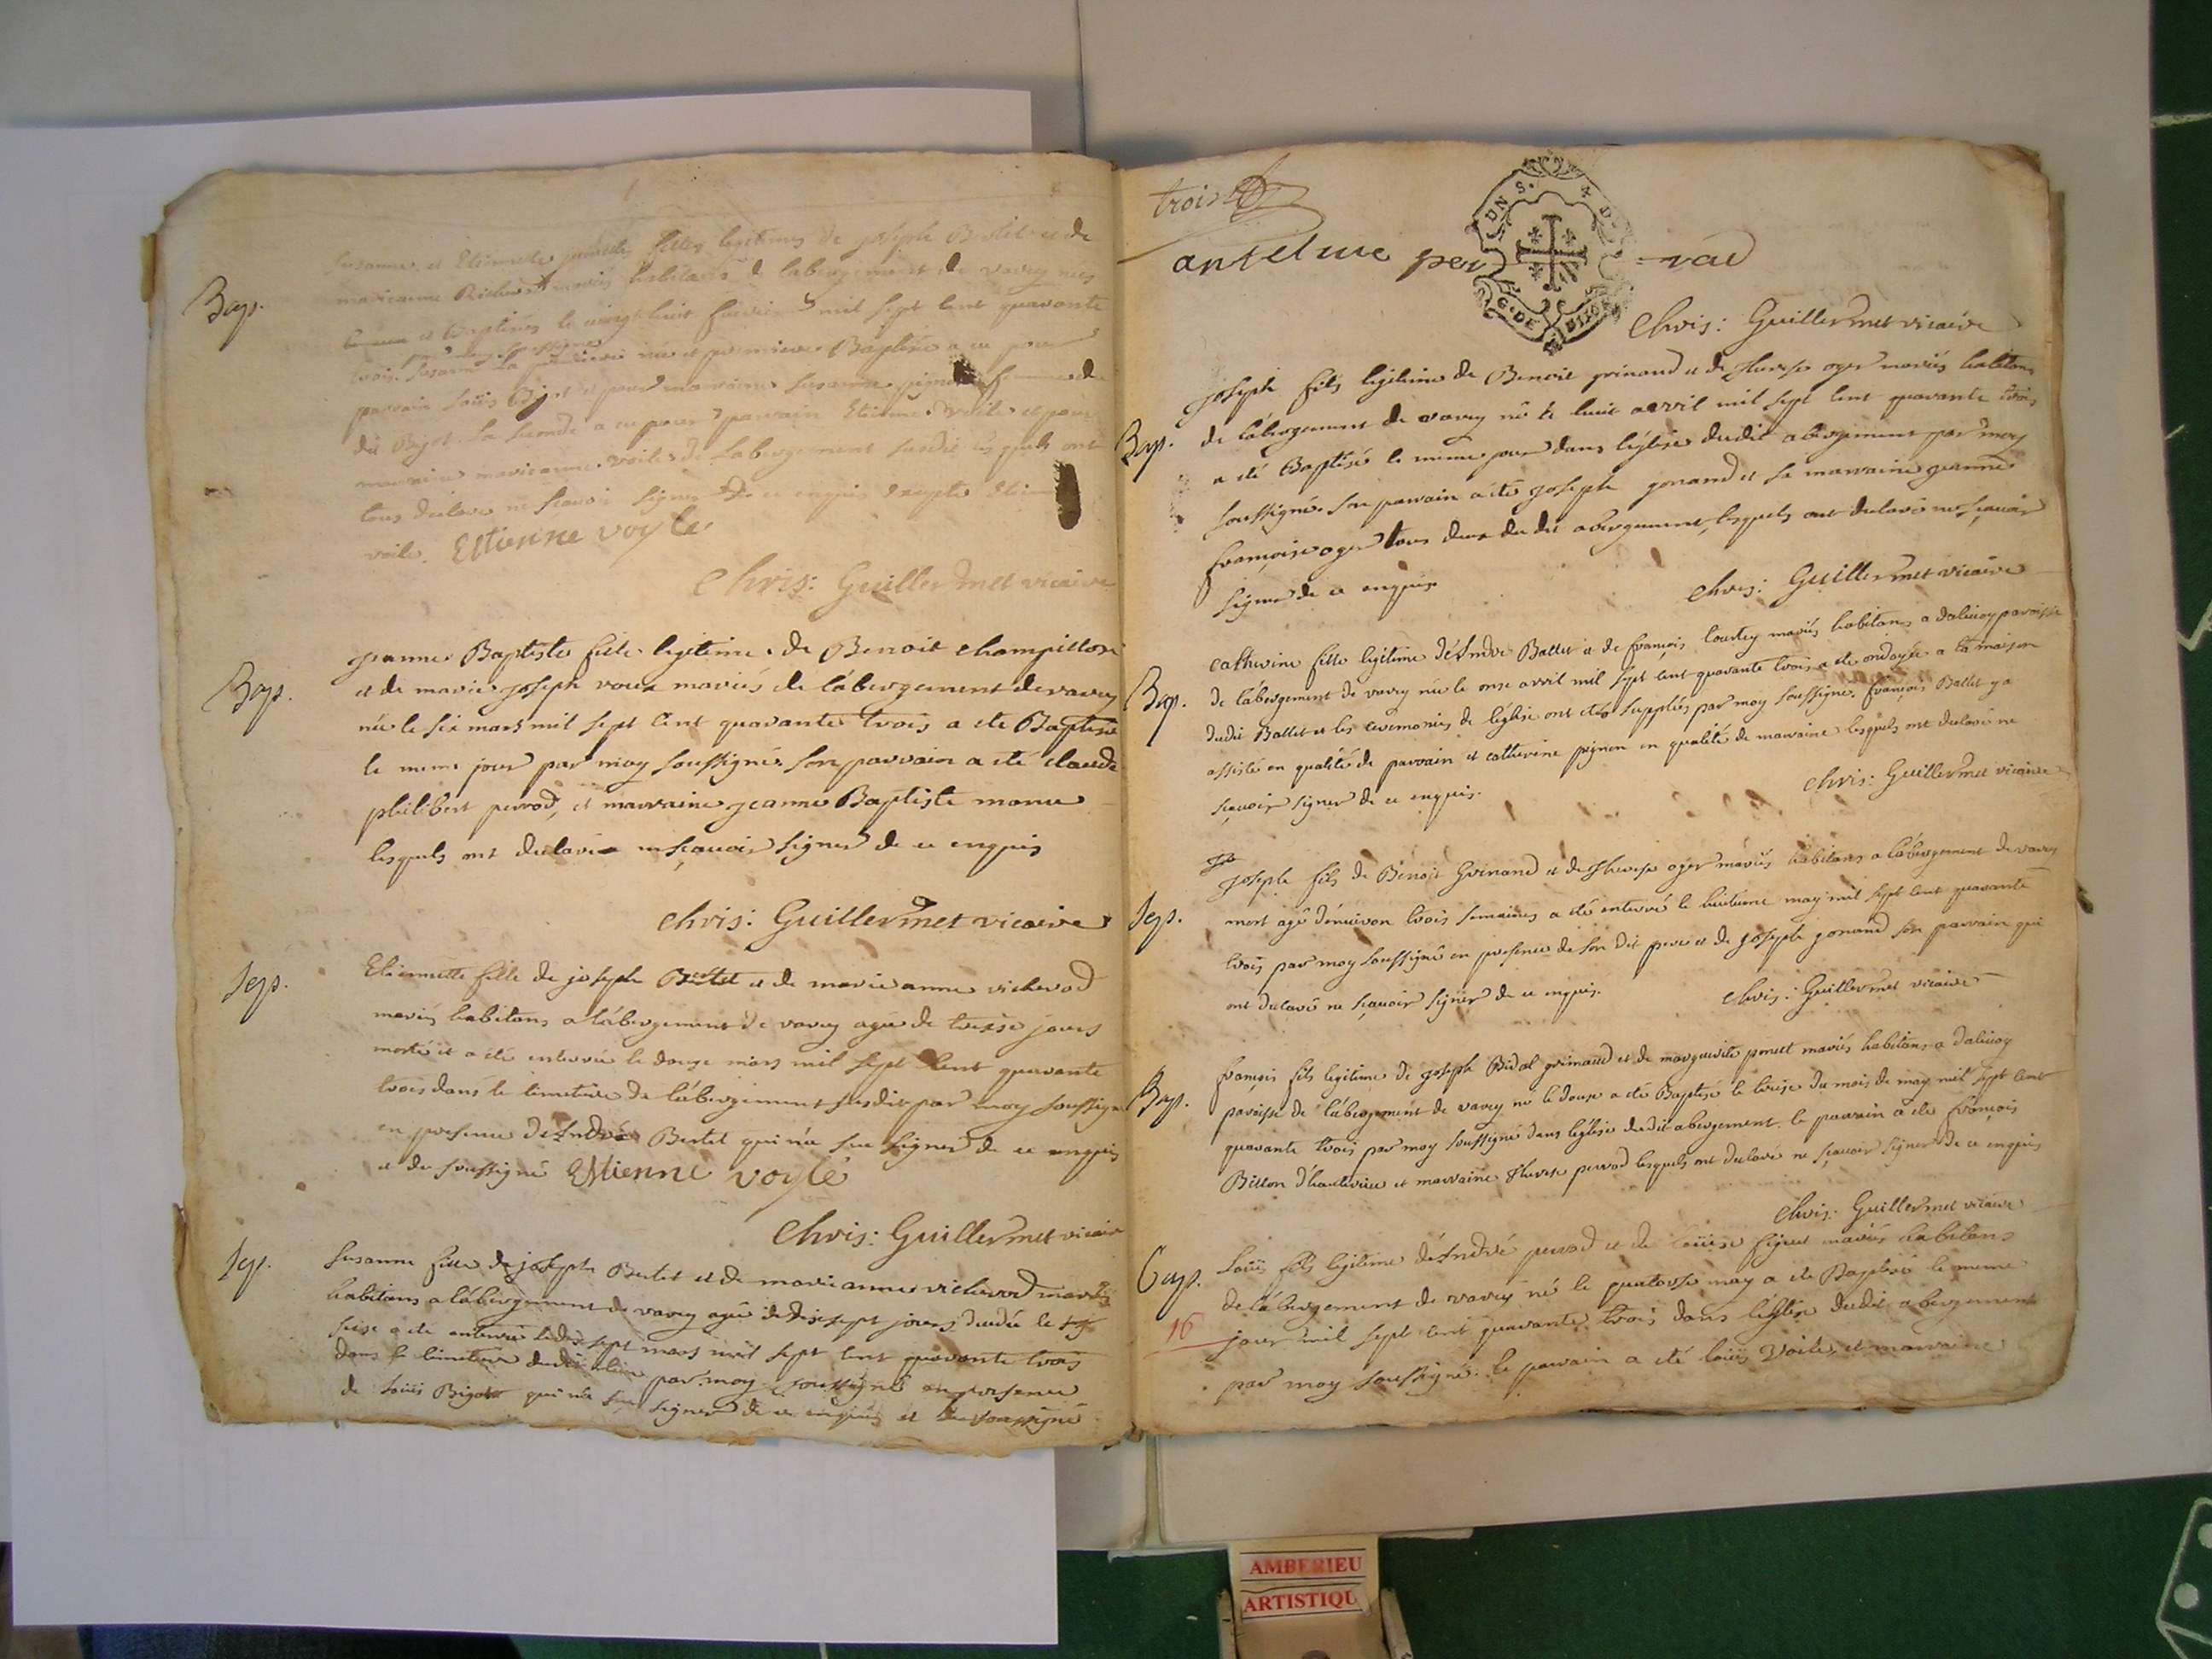 Bap.
Susanne et Etiennette jumelle filles legitimes de joseph Bertet et de
marieanne Richerod mariés habitans de labergement de varey nées
et Baptisées le vingt huit fevrier mil sept cent quarante
trois. Susanne la premiere née et premiere Baptisée a eu pour
parrain loüis Bigot et pour marraine Susanne femme de
dit Bigot. la seconde a eu pour parrain Etienne Voile et pour
marraine marieanne voile de Labergement susdit lesquels ont
tous declare ne scavoir signer de ce enquis excepte
voile. Estienne voyle
Chris: Guillermet vicaire
Bap.
jeanne Baptiste fille legitime de Benoit champillon
et de marie joseph roux mariés de l'abergement de varey
née le six mars mil sept cent quarante trois a eté Baptisée
le meme jour par moy soussigné. son parrain a eté claude
philibert perrod, et marraine jeanne Baptiste monu
lesquels ont declaré ne sçavoir signer de ce enquis
Chris: Guillermet vicaire
Sep.
Etiennette fille de joseph Bertet et de marie anne richerod
mariés habitans a l'abergement de varey agée de treize jours
morte et a eté enterrée le douze mars mil sept cent quarante
trois dans le cimetiere de l'abergement susdit par moy soussigné
en presence d'André Bertet qui n'a sceu signer de ce enquis
et du soussigné Estienne voyle
Chris: Guillermet vicaire
Sep.
Susanne fille de joseph Bertet et de marie anne richerod mariés
habitans a l'abergement de varey agée de dixsept jours decedée le
seize a eté enterrée le dix sept mars mil sept cent quarante trois
dans le cimetiere dudit lieu par moy soussigné en presence
de loüis Bigot qui n'a sceu signer de ce enquis et du soussigné
trois
anselme per=rad
UN S.
G. DE DIJON
Chris: Guillermet vicaire
Bap.
joseph fils legitime de Benoit grinand et de Therese oger mariés habitans
de l'abergement de varey né le huit avril mil sept cent quarante trois
a eté Baptisé le même jour dans l'église dudit abergement par moy
soussigné. Son parrain a eté joseph gonand et sa marraine jeanne
françoise oger tous deux du dit abergement, lesquels ont declaré ne sçavoir
signer de ce enquis.
Chris: Guillermet vicaire
Bap.
catherine fille legitime d'Andre Ballet et de françois tourtey mariés habitans a dalivoy paroisse
de l'abergement de varey née le onze avril mil sept cent quarante trois a eté ondoyée a la maison
dudit Ballet et les ceremonies de l'église ont eté supplées par moy soussigné. françois Ballet y a
assisté en qualité de parrain et catherine pignon en qualité de marraine lesquels ont declaré ne
sçavoir signer de ce enquis.
Chris: Guillermet vicaire
Sep.
joseph fils de Benoit Grinand et de Therese oger mariés habitans a l'abergement de varey
mort agé d'environ trois semaines a eté enterré le huitieme may mil sept cent quarante
trois par moy soussigné en presence de son dit pere et de joseph gonand son parrain qui
ont declaré ne sçavoir signer de ce enquis.
Chris: Guillermet vicaire
Bap.
françois fils legitime de joseph Bidal grimaud et de marguerite ponest mariés habitans a dalivoy
paroisse de l'abergement de varey né le douze a eté Baptisé le treize du mois de may mil sept cent
quarante trois par moy soussigné dans l'église dudit abergement. le parrain a eté françois
Billon d'hauterive et marraine Therese perrod lesquels ont declaré ne sçavoir signer de ce enquis
Chris: Guillermet vicaire
Bap.
16
loüis fils legitime d'André perrod et de loüise figuet mariés habitans
de l'abergement de varey né le quatorze may a eté Baptisé le meme
jour mil sept cent quarante trois dans l'église dudit abergement
par moy soussigné. le parrain a eté loüis Voile, et marraine
AMBERIEU
ARTISTIQU